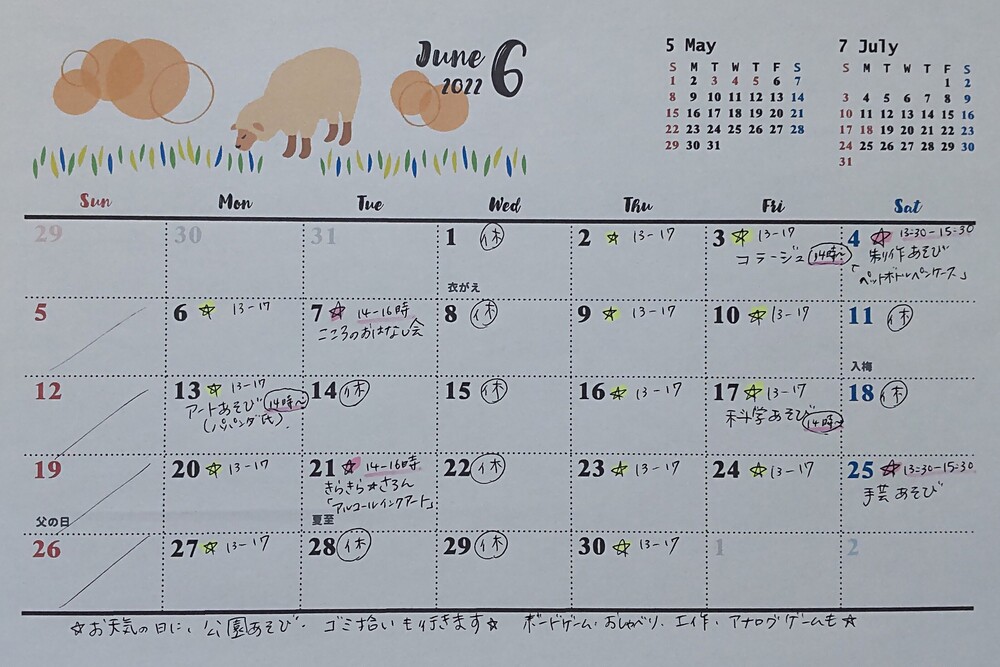 June 6
2022
5 May
S M T W T F S
1 2 3 4 5 6 7
8 9 10 11 12 13 14
15 16 17 18 19 20 21
22 23 24 25 26 27 28
29 30 31
7 July
S M T W T F S
1 2
3 4 5 6 7 8 9
10 11 12 13 14 15 16
17 18 19 20 21 22 23
24 25 26 27 28 29 30
31
Sun Mon Tue Wed Thu Fri Sat
29 30 31
1 休
衣がえ
2 ☆ 13-17
3 ☆ 13-17
コラージュ 14時~
4 ☆ 13:30-15:30
制作あそび
「ペットボトルペンケース」
5
6 ☆ 13-17
7 ☆ 14-16時
こころのおはなし会
8 休
9 ☆ 13-17
10 ☆ 13-17
11 休
入梅
12
13 ☆ 13-17
アートあそび 14時~
(パパンダ氏)
14 休
15 休
16 ☆ 13-17
17 ☆ 13-17
科学あそび 14時~
18 休
19
父の日
20 ☆ 13-17
21 ☆ 14-16時
きらきら☆さろん
「アルコールインクアート」
夏至
22 休
23 ☆ 13-17
24 ☆ 13-17
25 ☆ 13:30-15:30
手芸あそび
26
27 ☆ 13-17
28 休
29 休
30 ☆ 13-17
1 2
☆お天気の日に、公園あそび・ゴミ拾いも行きます☆ ボードゲーム・おしゃべり・工作・アナログゲームも☆